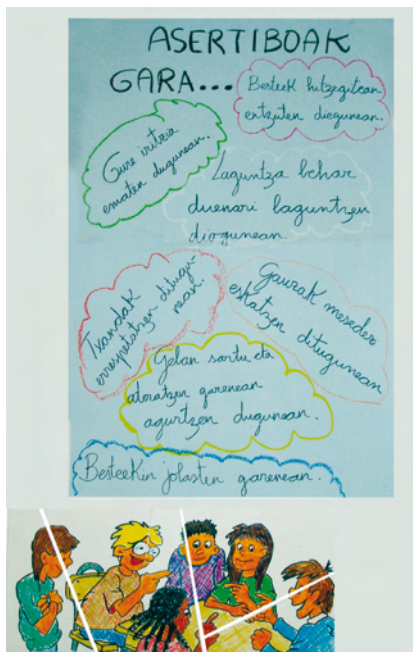 ASERTIBOAK
GARA...
Besteek hitzegitean
entzuten diegunean.
Gure iritzia
ematen dugunean.
Laguntza behar
duenari laguntzen
diogunean.
Txandak
errespetatzen ditugu-
nean.
Gauzak mesedez
eskatzen ditugunean
Gelan sartu eta
ateratzen garenean
agurtzen dugunean.
Besteekin jolasten garenean.